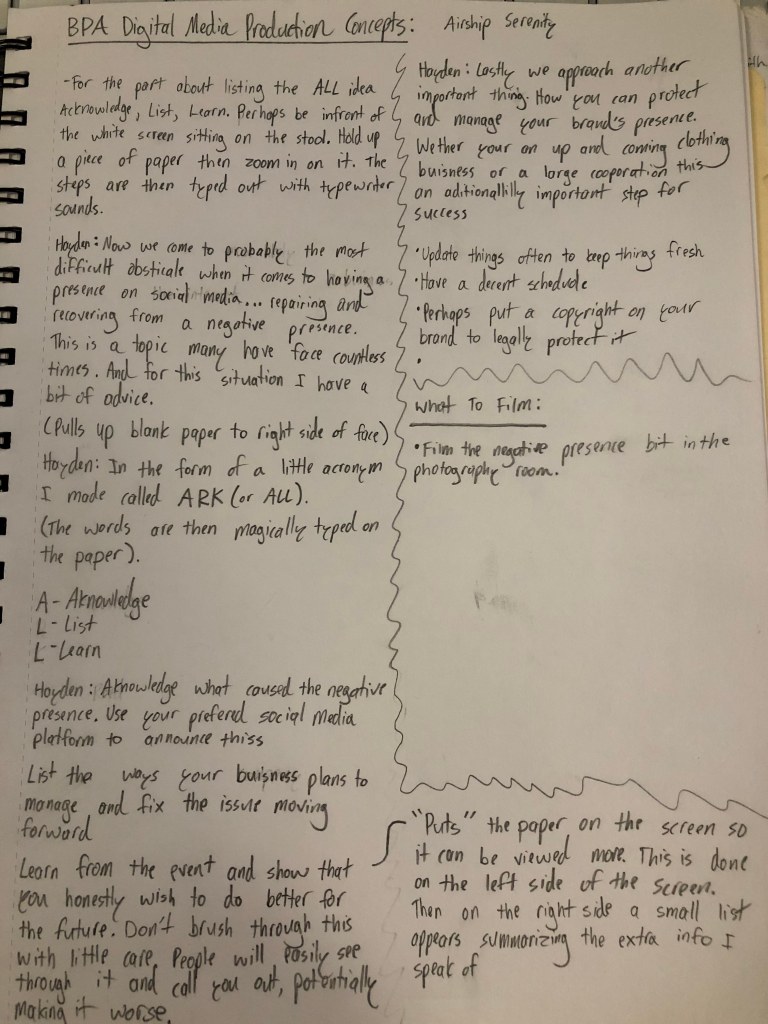 BPA Digital Media Production Concepts: Airship Serenity
-For the part about listing the ALL idea
Acknowledge, List, Learn. Perhaps be infront of
the white screen sitting on the stool. Hold up
a piece of paper then zoom in on it. The
steps are then typed out with typewriter
sounds.
Hayden: Now we come to probably the most
difficult obsticale when it comes to having a
presence on social media... repairing and
recovering from a negative presence.
This is a topic many have face countless
times. And for this situation I have a
bit of advice.
(Pulls up blank paper to right side of face)
Hayden: In the form of a little acronym
I made called ARK (or ALL).
(The words are then magically typed on
the paper).
A - Aknowledge
L - List
L - Learn
Hayden: Aknowledge what caused the negative
presence. Use your prefered social media
platform to announce thiss
List the ways your buisness plans to
manage and fix the issue moving
forward
Learn from the event and show that
you honestly wish to do better for
the future. Don't brush through this
with little care. People will easily see
through it and call you out, potentially
making it worse.
Hayden: Lastly we approach another
important thing. How you can protect
and manage your brand's presence.
Wether your an up and coming clothing
buisness or a large cooporation this
an aditionallilly important step for
success
•Update things often to keep things fresh
•Have a decent schedule
•Perhaps put a copyright on your
brand to legally protect it
•
What To Film:
•Film the negative presence bit in the
photography room.
"Puts" the paper on the screen so
it can be viewed more. This is done
on the left side of the screen.
Then on the right side a small list
appears summarizing the extra info I
speak of